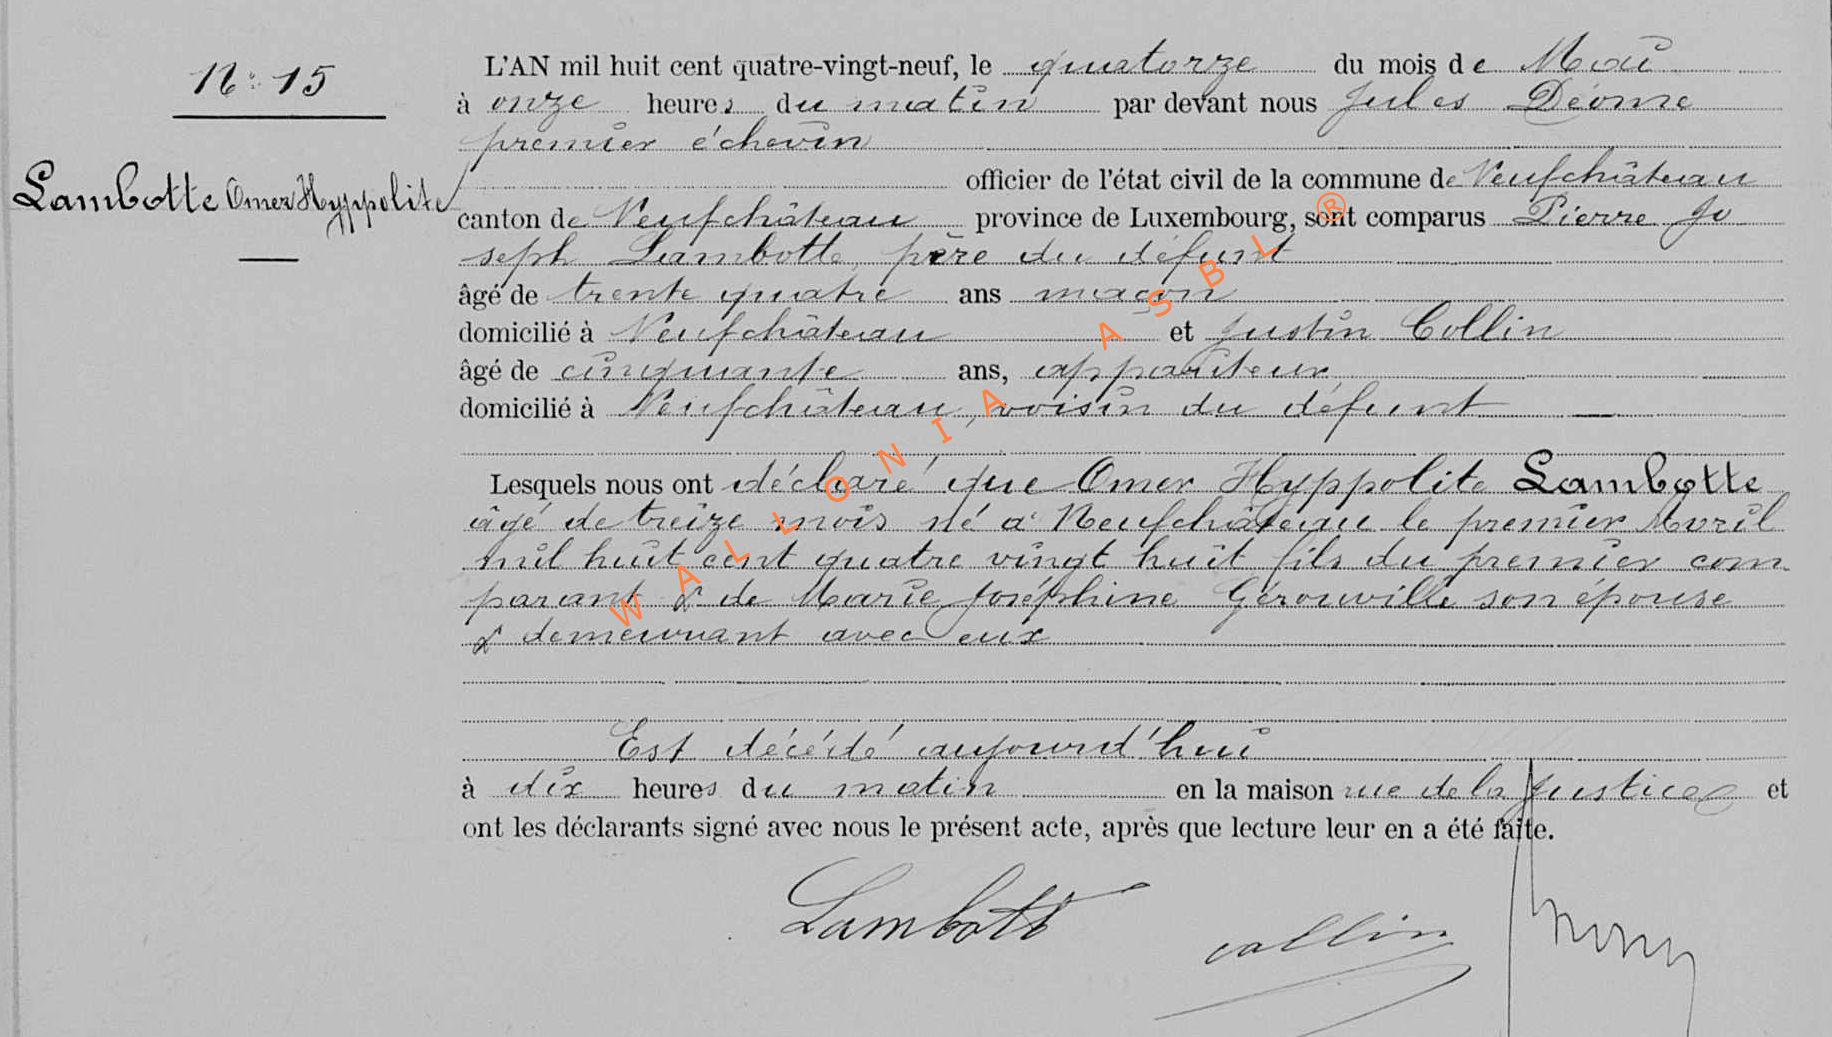 N° 15
Lambotte Omer Hyppolite
L'AN mil huit cent quatre-vingt-neuf, le quatorze du mois de Mai
à onze heures du matin par devant nous Jules Déome
premier échevin
officier de l'état civil de la commune de Neufchâteau
canton de Neufchâteau province de Luxembourg, sont comparus Pierre Jo
seph Lambotte, père du défunt
âgé de trente quatre ans maçon
domicilié à Neufchâteau et Justin Collin
âgé de cinquante ans, appariteur
domicilié à Neufchâteau, voisin du défunt —
Lesquels nous ont déclaré que Omer Hyppolite Lambotte
âgé de treize mois né à Neufchâteau le premier Avril
mil huit cent quatre vingt huit fils du premier com
parant & de Marie Joséphine Gérouville son épouse
& demeurant avec eux
Est décédé aujourd'hui
à dix heures du matin en la maison rue de la Justice et
ont les déclarants signé avec nous le présent acte, après que lecture leur en a été faite.
Lambotte
collin
WALLONIA ASBL ®